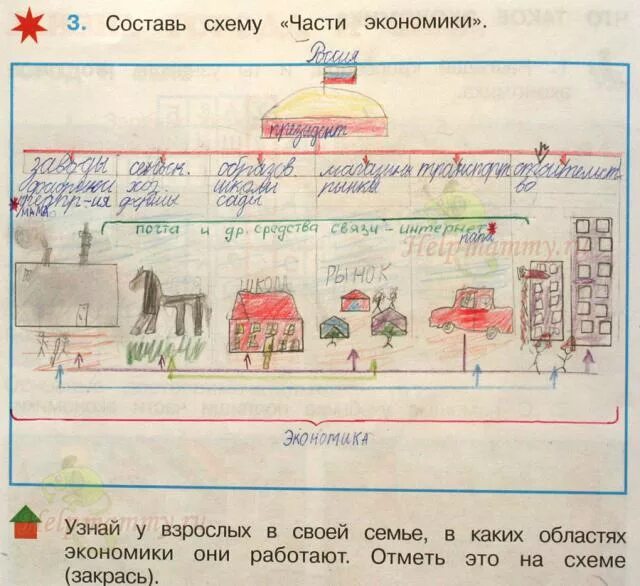 3. Составь схему «Части экономики».
Россия
президент
заводы сельск. образов. магазины транспорт строительст
фабрики хоз. школы рынки во
предпр-ия фермы сады
мама
почта и др. средства связи - интернет
папа
Help-mammy.ru
ШКОЛА РЫНОК
ЭКОНОМИКА
Help-mammy.ru
Узнай у взрослых в своей семье, в каких областях
экономики они работают. Отметь это на схеме
(закрась).